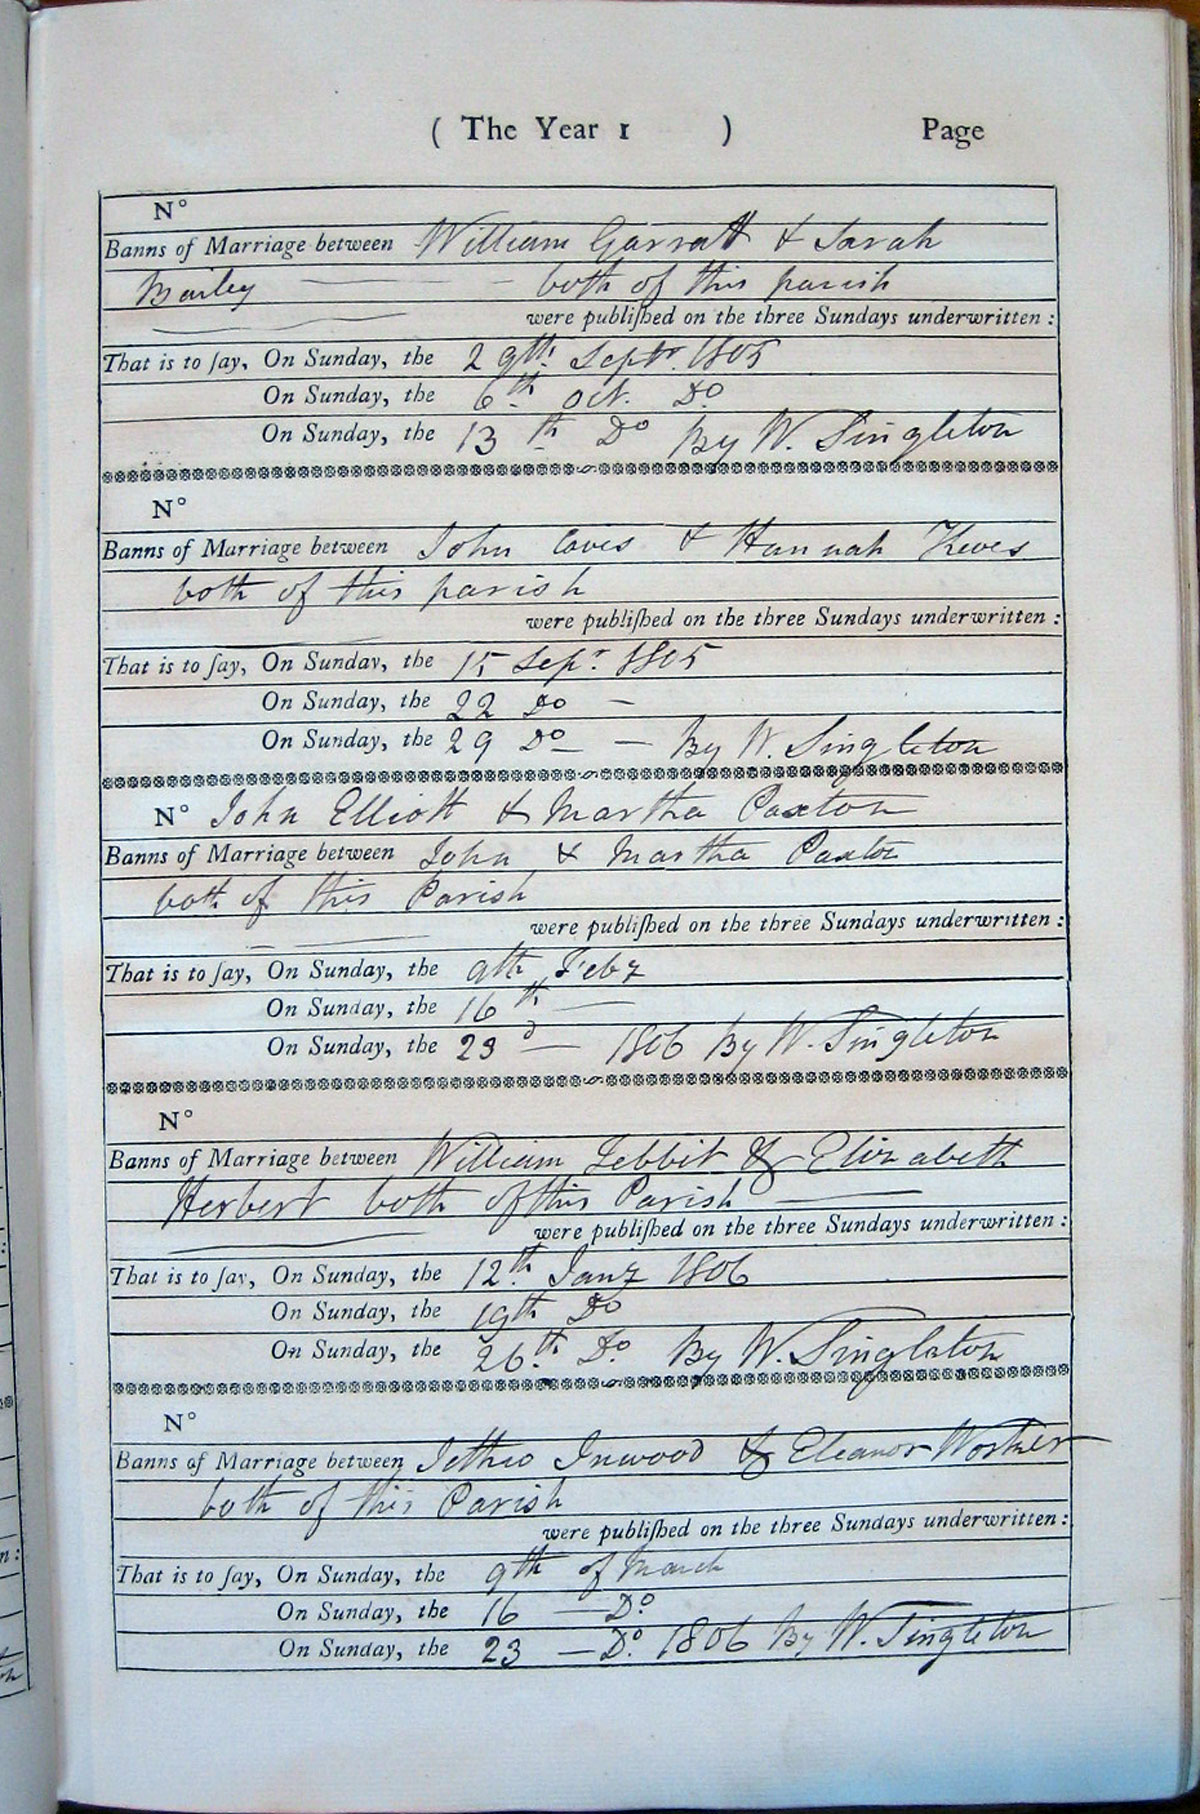 ( The Year 1 ) Page
N°
Banns of Marriage between William Garratt & Sarah
Bailey — both of this parish
were publiſhed on the three Sundays underwritten :
That is to ſay, On Sunday, the 29th. Septr. 1805
On Sunday, the 6th. Oct. Do
On Sunday, the 13th Do By W. Singleton
N°
Banns of Marriage between John Caves & Hannah
both of this parish
were publiſhed on the three Sundays underwritten :
That is to ſay, On Sunday, the 15 Sepr. 1805
On Sunday, the 22 Do —
On Sunday, the 29 Do — By W. Singleton
N° John Elliott & Martha Paxton
Banns of Marriage between John & Martha Paxton
both of this Parish
were publiſhed on the three Sundays underwritten :
That is to ſay, On Sunday, the 9th Feby
On Sunday, the 16th —
On Sunday, the 23d — 1806 By W. Singleton
N°
Banns of Marriage between William Tebbit & Elizabeth
Herbert both of this Parish —
were publiſhed on the three Sundays underwritten :
That is to ſay, On Sunday, the 12th. Jany 1806
On Sunday, the 19th Do
On Sunday, the 26th. Do. By W. Singleton
N°
Banns of Marriage between Jethro Inwood & Eleanor
both of this Parish
were publiſhed on the three Sundays underwritten :
That is to ſay, On Sunday, the 9th of March
On Sunday, the 16 — Do.
On Sunday, the 23 — Do. 1806 By W. Singleton